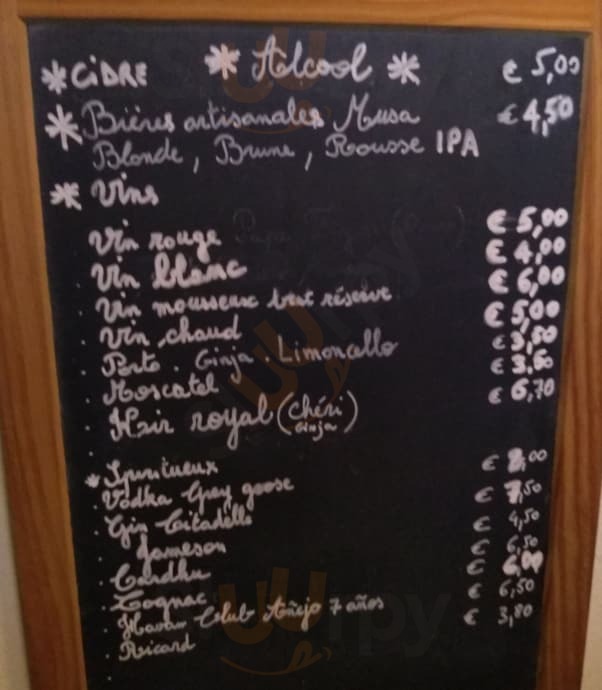 * Alcool *
* CiDRE € 5,00
* Bières artisanales Musa € 4,50
Blonde, Brune, Rousse IPA
* Vins
. Vin rouge € 5,00
. Vin blanc € 4,00
. Vin mousseux brut réserve € 6,00
. Vin chaud € 5,00
. Porto . Ginja . Limoncello € 3,50
. Moscatel € 3,50
. Kir royal (chéri Ginja) € 6,70
* Spiritueux
. Vodka Grey goose € 8,00
. Gin Citadelle € 7,50
. Jameson € 4,50
. Cardhu € 6,50
. Cognac € 6,00
. Havan Club Añejo 7 años € 6,50
. Ricard € 3,80